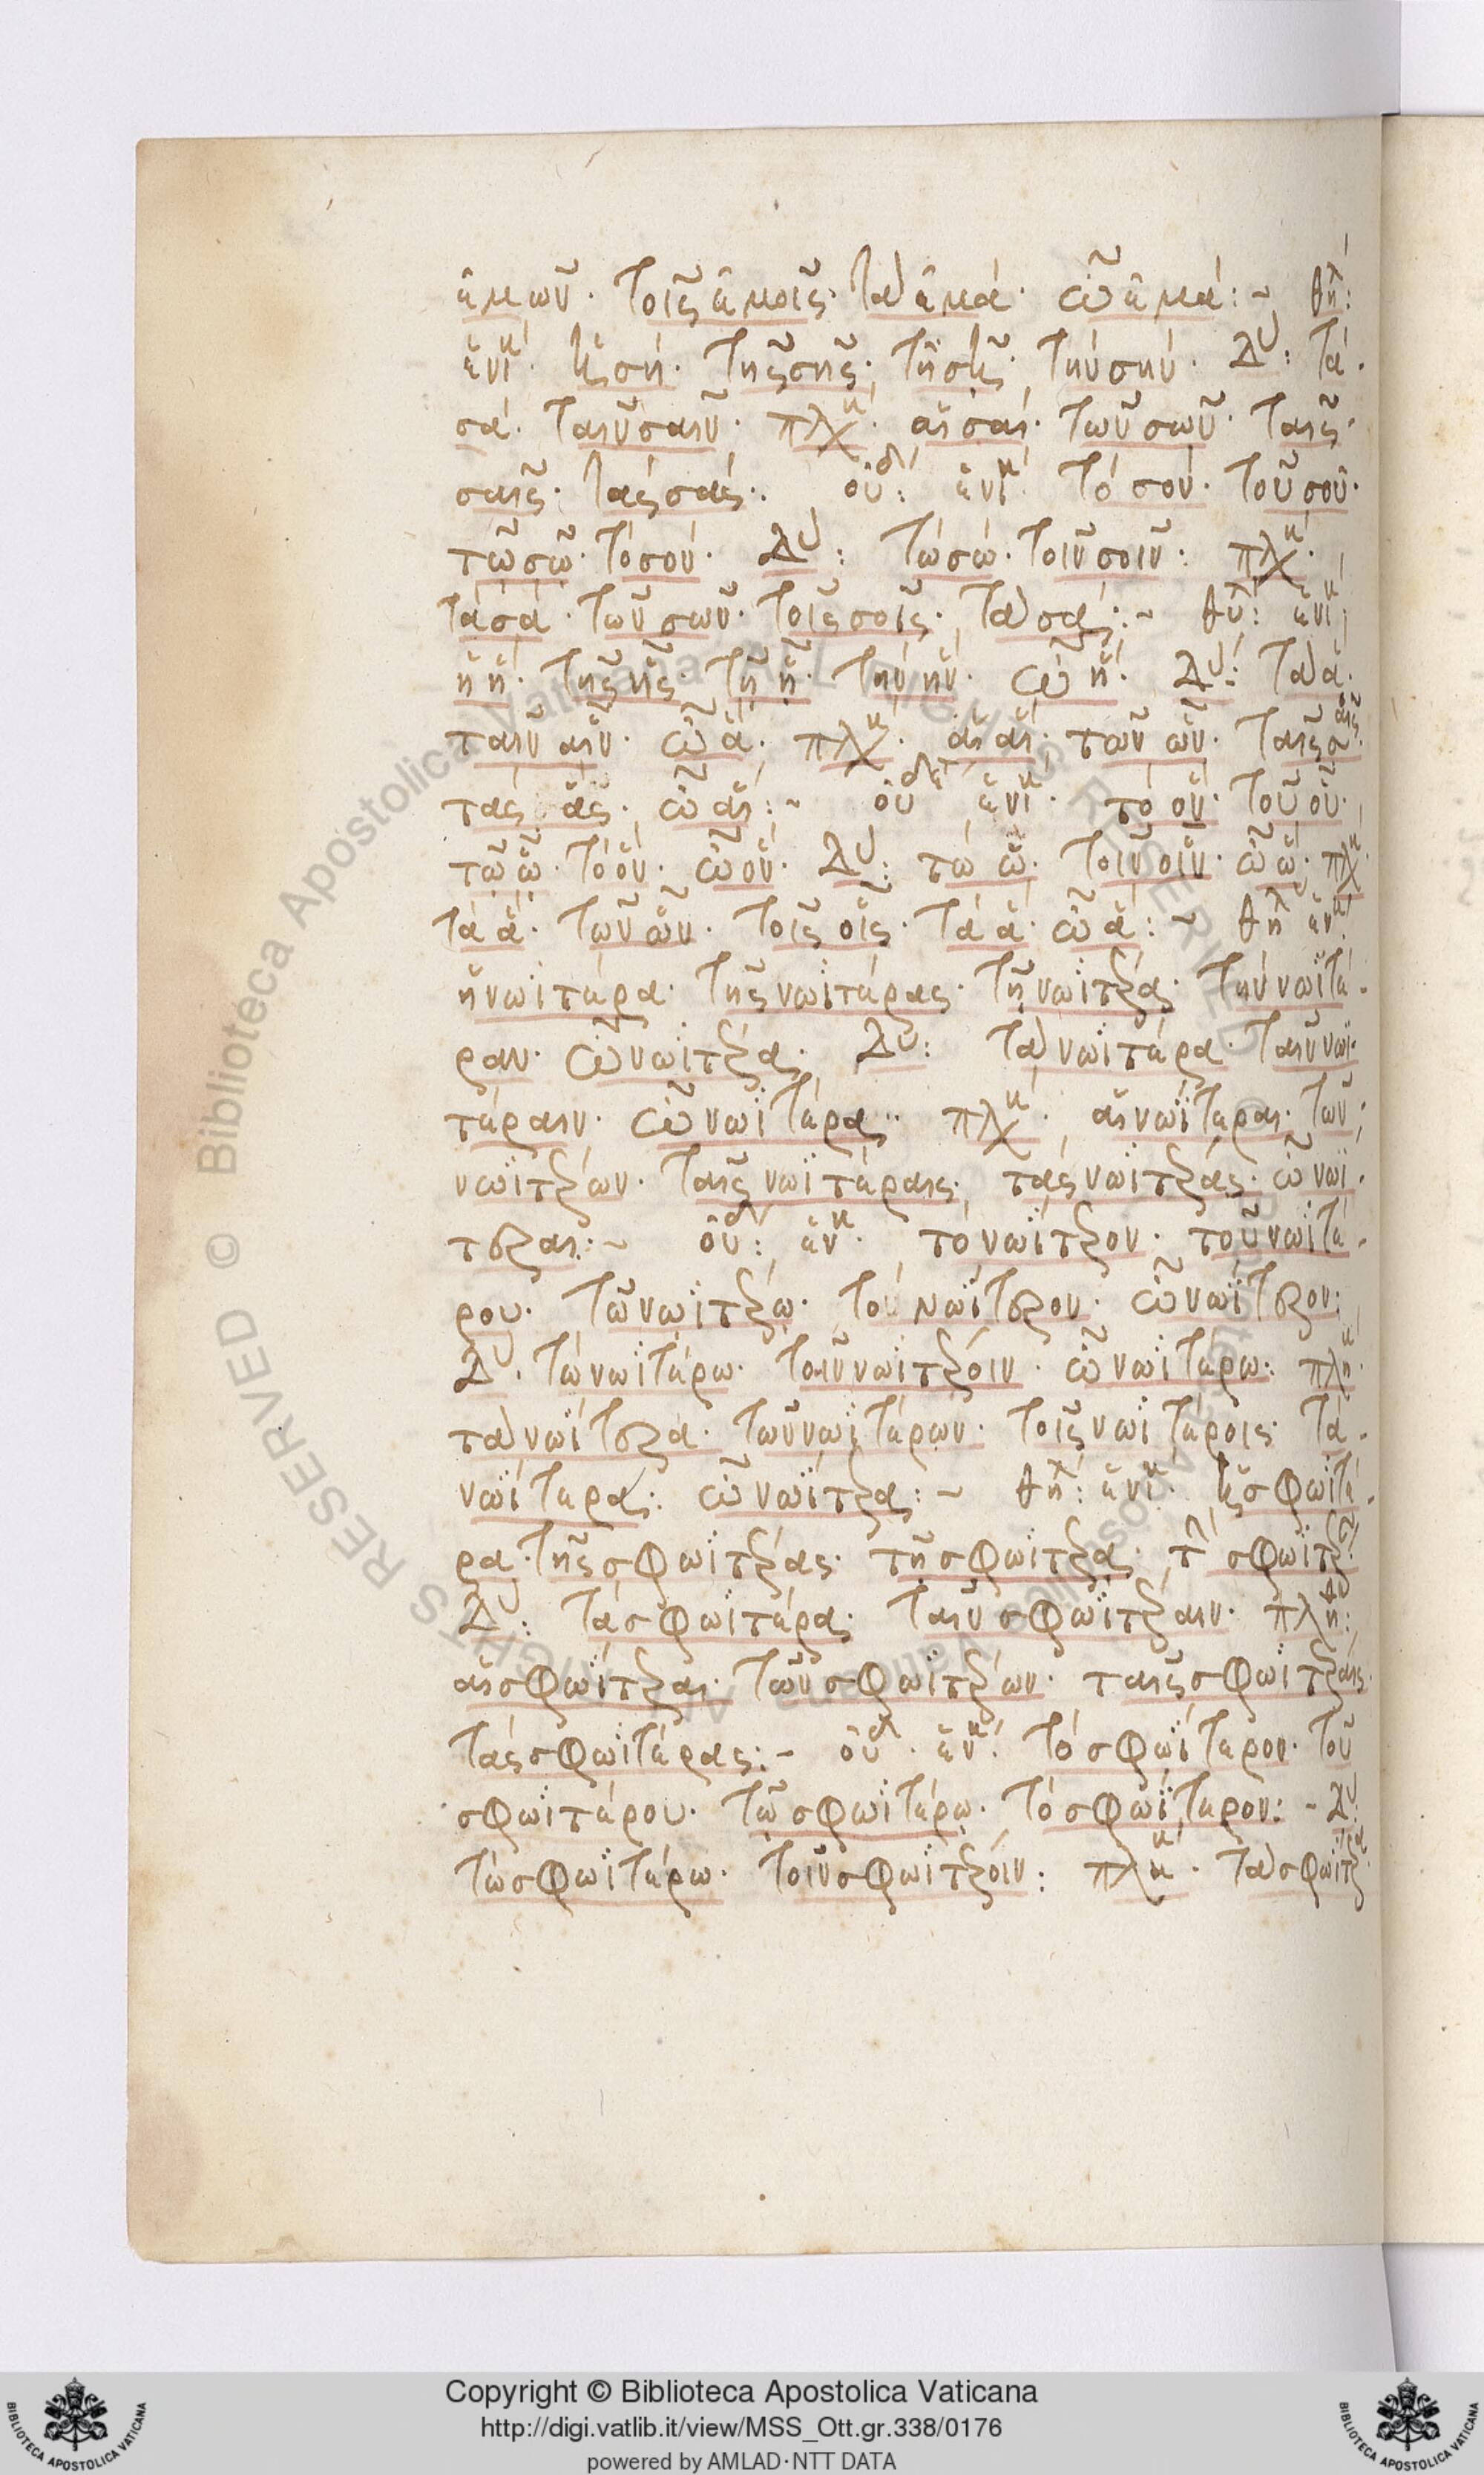 ἐμῶν. τοῖς ἐμοῖς. τὰ ἐμά. ὦ ἐμά:~ θηλ:
ἑνικ. ἡ σή. τῆς σῆς. τῇ σῇ. τὴν σήν. δυ: τὰ
σά. ταῖν σαῖν. πλη. αἱ σαί. τῶν σῶν. ταῖς
σαῖς. τὰς σάς. οὐδ: ἑνικ. τὸ σόν. τοῦ σοῦ.
τῷ σῷ. τὸ σόν. δυ: τὼ σώ. τοῖν σοῖν: πλη.
τὰ σά. τῶν σῶν. τοῖς σοῖς. τὰ σά:~ θηλ: ἑνικ:
ἡ ἥ. τῆς ἧς. τῇ ᾗ. τὴν ἥν. ὦ ἥ. δυ: τὰ ἅ.
ταῖν αἷν. ὦ ἅ. πλη. αἱ αἵ. τῶν ὧν. ταῖς αἷς.
τὰς ἅς. ὦ αἵ:~ οὐδε ἑνικ. τὸ ὅν. τοῦ οὗ.
τῷ ᾧ. τὸ ὅν. ὦ ὅν. δυ: τὼ ὥ. τοῖν οἷν. ὦ ὥ. πλη
τὰ ἅ. τῶν ὧν. τοῖς οἷς. τὰ ἅ. ὦ ἅ:~ θηλ ἑνικ
ἡ νωϊτέρα. τῆς νωϊτέρας. τῇ νωϊτέρᾳ. τὴν νωϊτέ-
ραν. ὦ νωϊτέρα. δυ: τὰ νωϊτέρα. ταῖν νωϊ-
τέραιν. ὦ νωϊτέρα. πλη. αἱ νωΐτεραι. τῶν
νωϊτέρων. ταῖς νωϊτέραις. τὰς νωϊτέρας. ὦ νωΐ-
τεραι:~ οὐδ: ἑνικ. τὸ νωΐτερον. τοῦ νωϊτέ-
ρου. τῷ νωϊτέρῳ. τὸν νωΐτερον. ὦ νωΐτερον:
δυ. τὼ νωϊτέρω. τοῖν νωϊτέροιν. ὦ νωϊτέρω: πλη.
τὰ νωΐτερα. τῶν νωϊτέρων. τοῖς νωϊτέροις. τὰ
νωΐτερα: ὦ νωΐτερα:~ θηλ: ἑνικ. ἡ σφωϊτέ-
ρα. τῆς σφωϊτέρας. τῇ σφωϊτέρᾳ. τὴν σφωϊτέραν
δυ: τὰ σφωϊτέρα. ταῖν σφωϊτέραιν. πλη:
αἱ σφωΐτεραι. τῶν σφωϊτέρων. ταῖς σφωϊτέραις.
τὰς σφωϊτέρας:~ οὐδ. ἑνικ. τὸ σφωΐτερον. τοῦ
σφωϊτέρου. τῷ σφωϊτέρῳ. τὸ σφωΐτερον:~ δυ:
τὼ σφωϊτέρω. τοῖν σφωϊτέροιν: πλη. τὰ σφωΐτερα
Copyright © Biblioteca Apostolica Vaticana
http://digi.vatlib.it/view/MSS_Ott.gr.338/0176
powered by AMLAD·NTT DATA